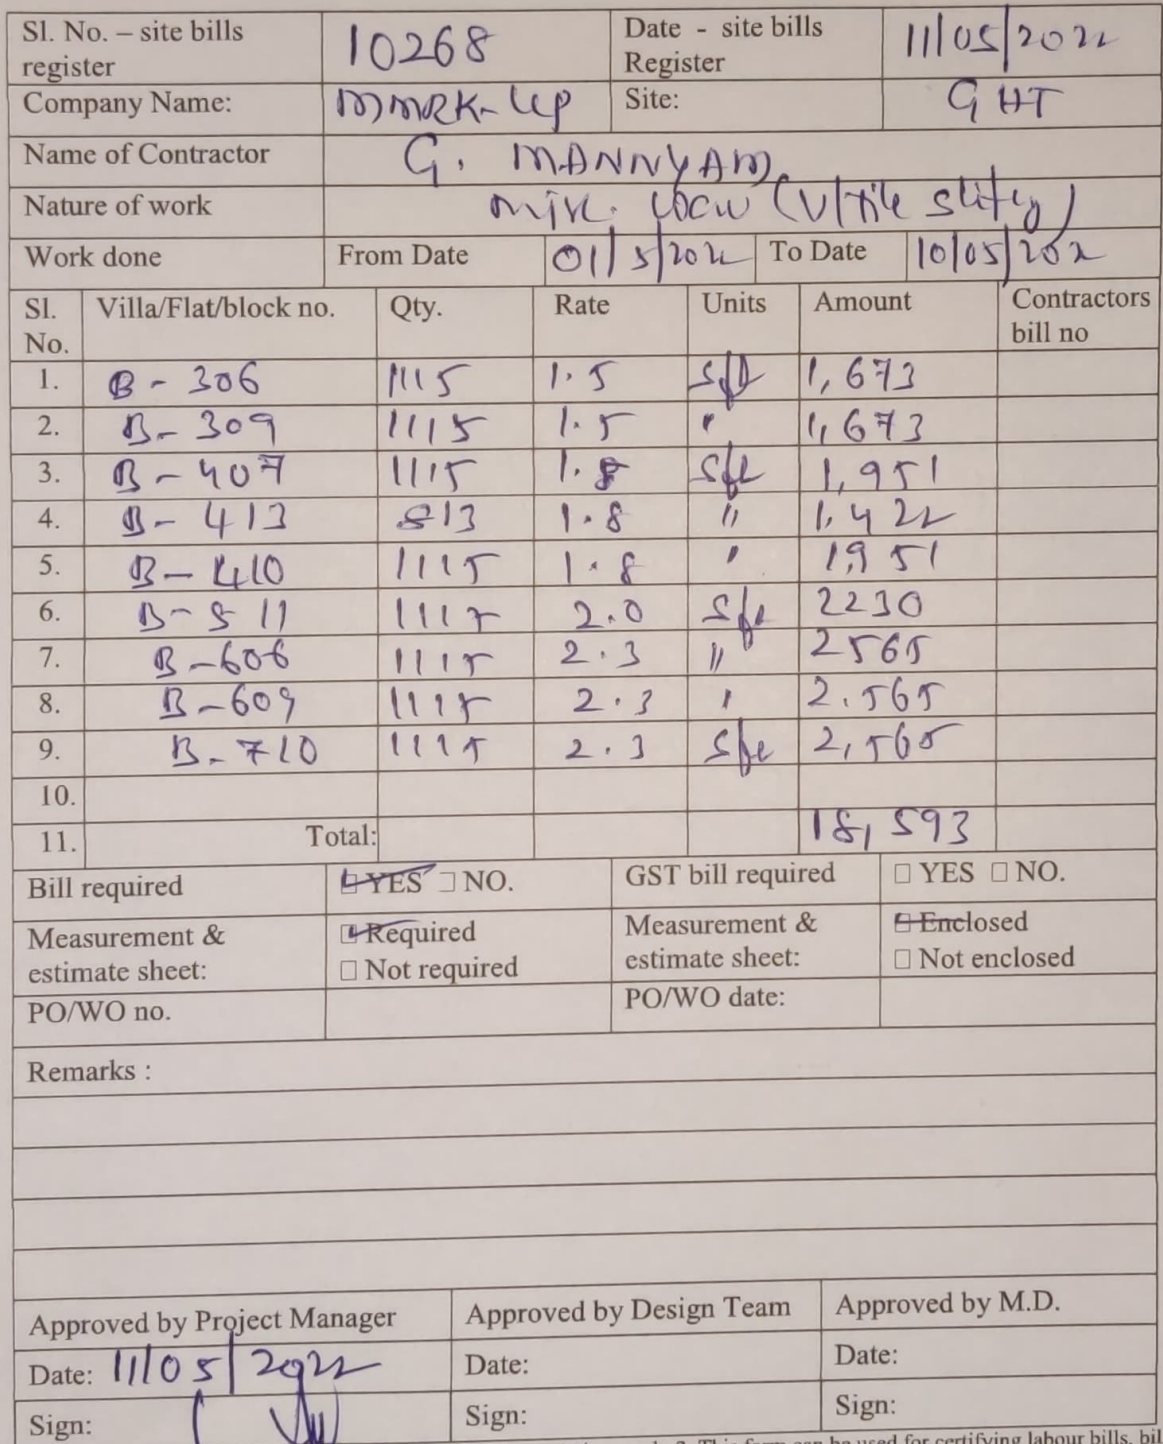 Sl. No. – site bills register 10268 Date - site bills Register 11/05/2022
Company Name: MMRK-LLP Site: GHT
Name of Contractor G. MANNYAM
Nature of work (V/Tile
Work done From Date 01/5/2022 To Date 10/05/202
Sl. No. Villa/Flat/block no. Qty. Rate Units Amount Contractors bill no
1. B - 306 1115 1.5 sft 1,673
2. B - 309 1115 1.5 " 1,673
3. B - 407 1115 1.8 sft 1,951
4. B - 413 813 1.8 " 1,422
5. B - 410 1115 1.8 " 1951
6. B - 511 1115 2.0 sft 2230
7. B - 606 1115 2.3 " 2565
8. B - 609 1115 2.3 " 2.565
9. B - 710 1115 2.3 sft 2,565
10.
11. Total: 18,593
Bill required YES NO. GST bill required YES NO.
Measurement & estimate sheet: Required Measurement & estimate sheet: Enclosed
Not required Not enclosed
PO/WO no. PO/WO date:
Remarks :
Approved by Project Manager Approved by Design Team Approved by M.D.
Date: 11/05/2022 Date: Date:
Sign: Sign: Sign:
This form can be used for certifying labour bills, bil